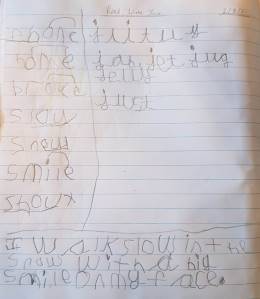 phone
home
broke
slow
snow
smile
show
jar jet jug
jelly
just
If I walk slow in the
snow with a big
smile on my face.